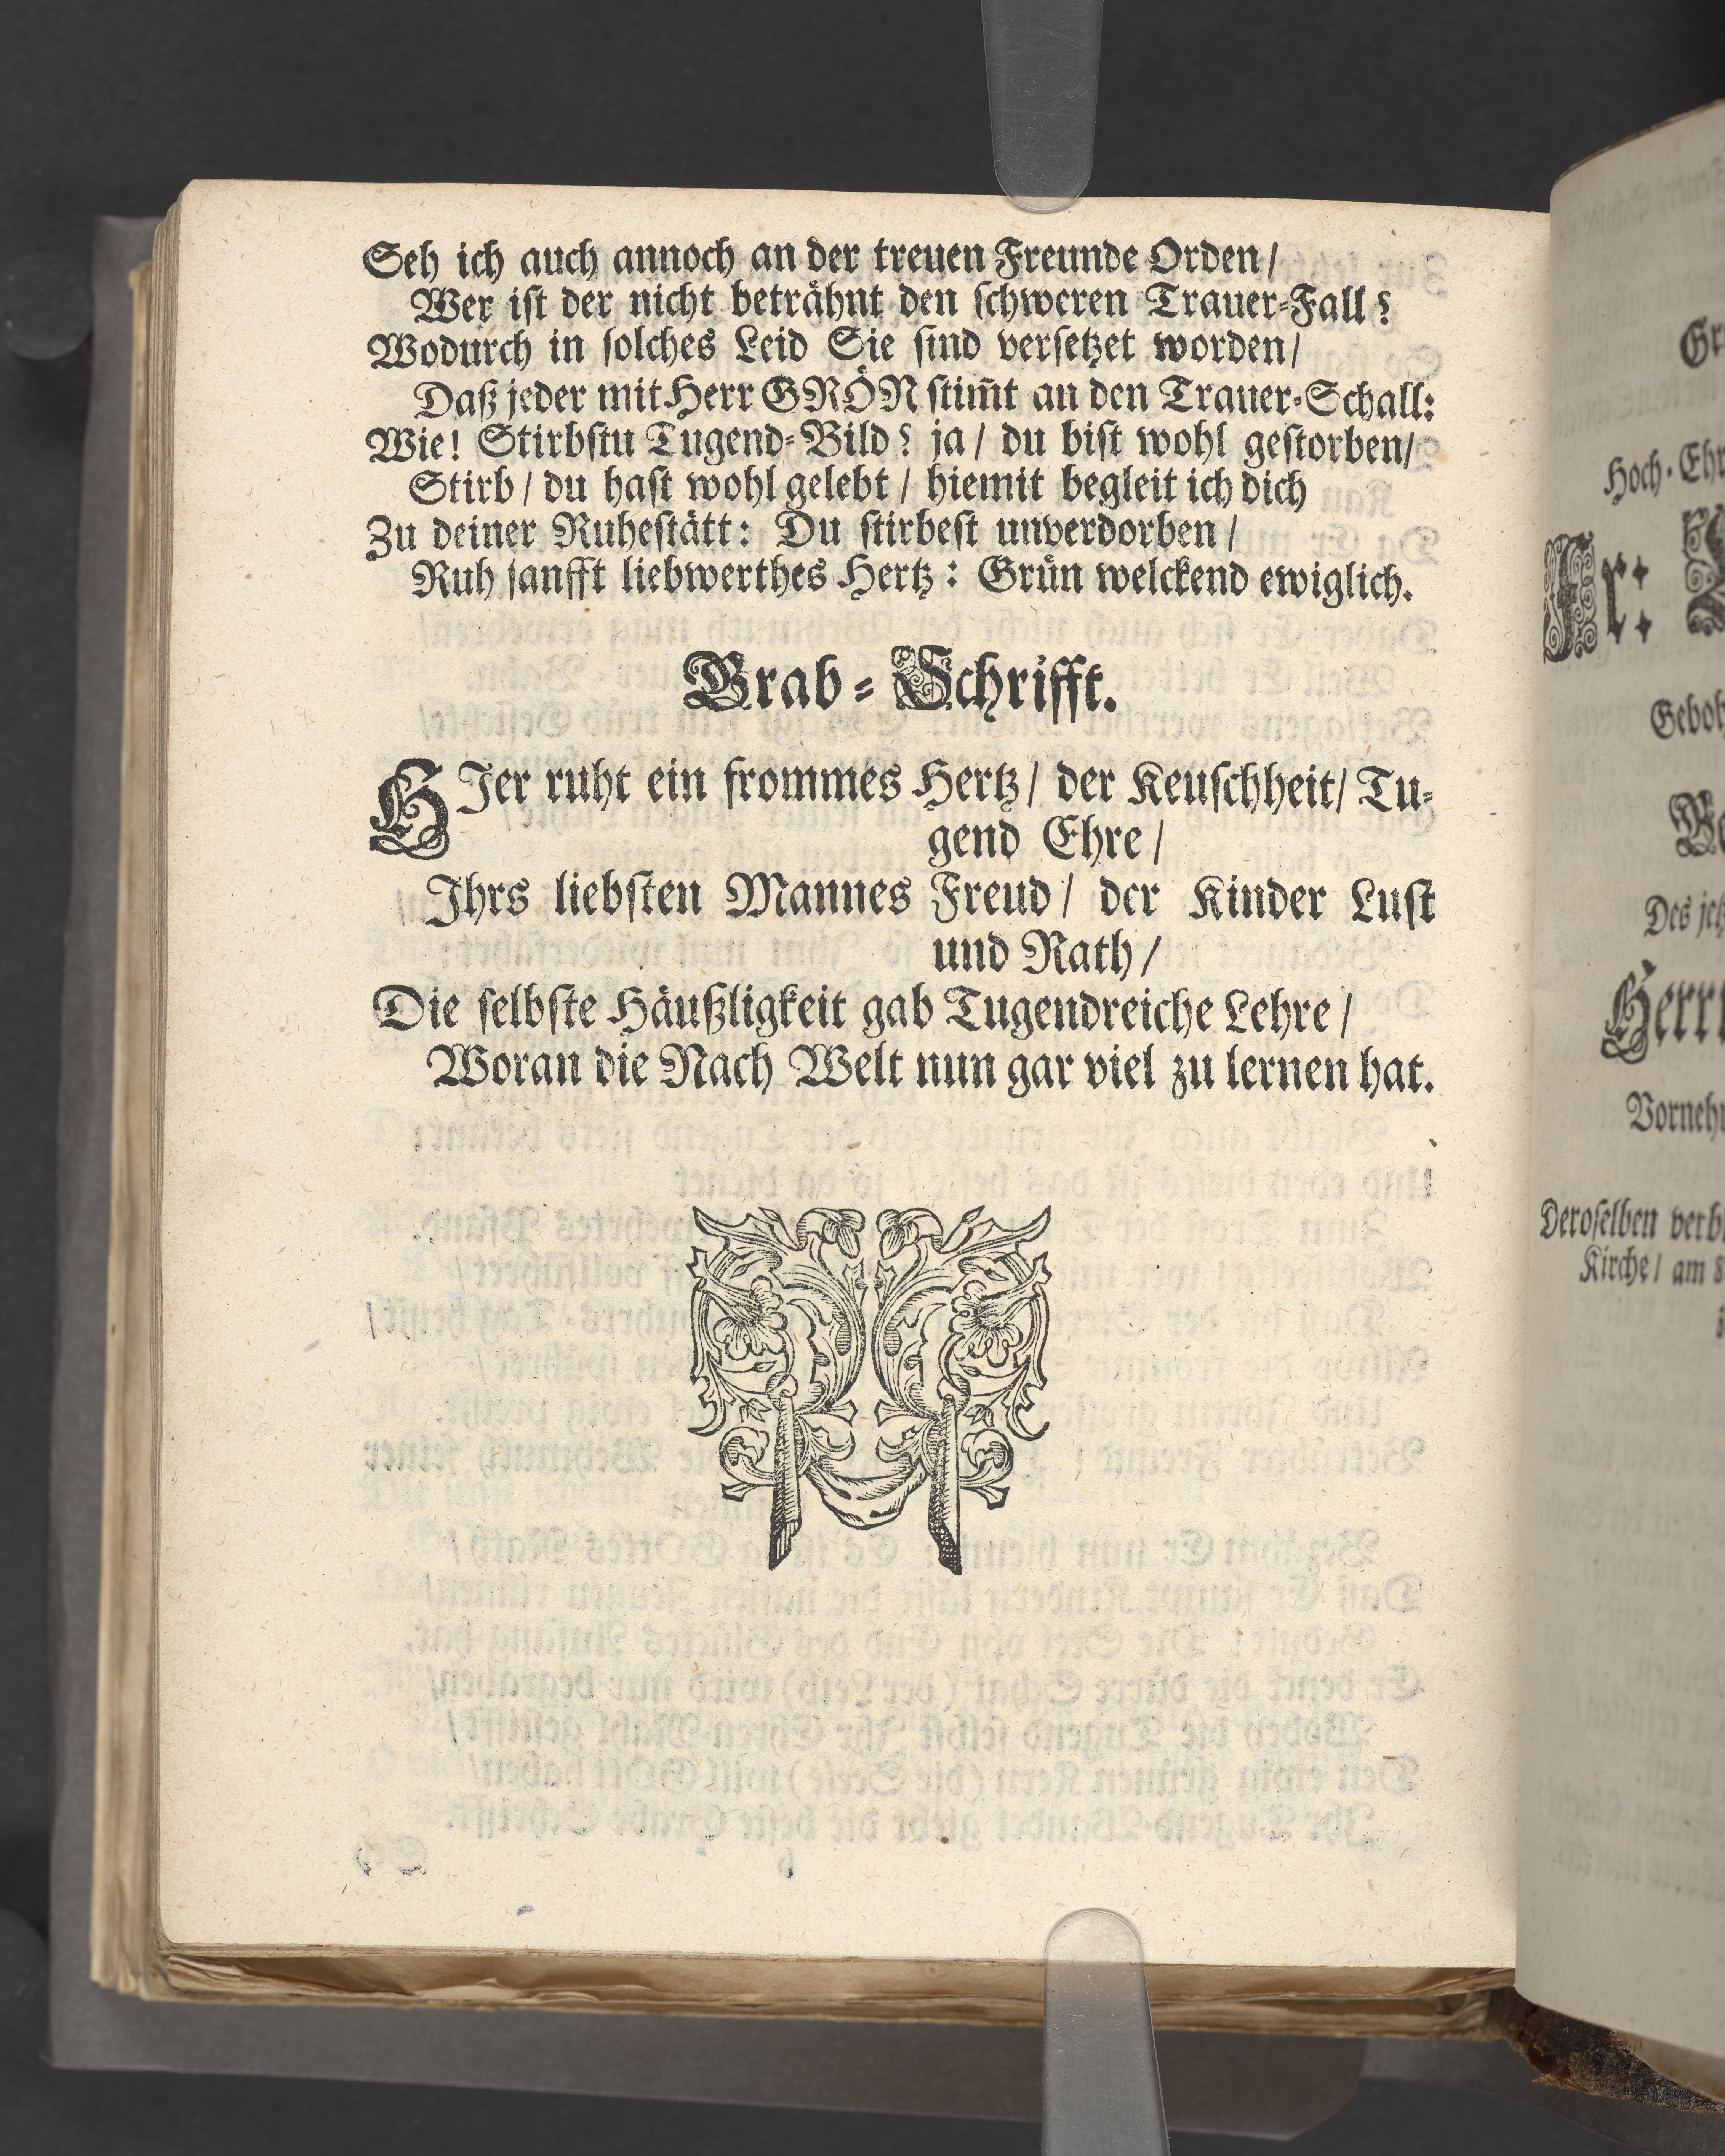 Seh ich auch annoch an der treuen Freunde Orden/
Wer ist der nicht beträhnt den schweren Trauer-Fall?
Wodurch in solches Leid Sie sind versetzet worden/
Daß jeder mit Herr GRÖN stim̃t an den Trauer-Schall:
Wie! Stirbstu Tugend-Bild? ja/ du bist wohl gestorben/
Stirb/ du hast wohl gelebt/ hiemit begleit ich dich
Zu deiner Ruhestätt: Du stirbest unverdorben/
Ruh sanfft liebwerthes Hertz: Grün welckend ewiglich.
Grab-Schrifft.
HIer ruht ein frommes Hertz/ der Keuschheit/ Tu-
gend Ehre/
Ihrs liebsten Mannes Freud/ der Kinder Lust
und Rath/
Die selbste Häußligkeit gab Tugendreiche Lehre/
Woran die Nach Welt nun gar viel zu lernen hat.
Hoch-Ehr
Des jetz
Herrn
Vornehm
Deroselben verb
Kirche/ am 8